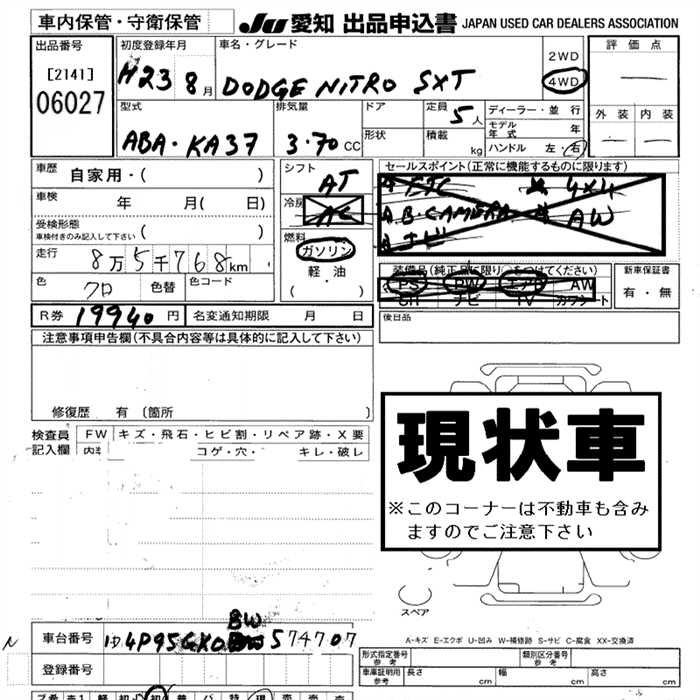 車内保管・守衛保管 JU 愛知 出品申込書 JAPAN USED CAR DEALERS ASSOCIATION
出品番号 初度登録年月 車名・グレード 2WD 評価点
[2141] H23 8月 DODGE NITRO SXT 4WD
06027 外装 内装
型式 排気量 ドア 定員 5人 ディーラー・並行
モデル年式 年
ABA・KA37 3.70CC 形状 積載 kg ハンドル 左・右
車歴 自家用・( ) シフト AT セールスポイント(正常に機能するものに限ります)
車検 年 月( 日) 冷房 AC ETC 4×4
A.B.CAMERA AW
受検形態 ( ) ナビ
車検付きのみ記入して下さい 燃料
走行 8万5千768km ガソリン 装備品(純正品に限り をつけてください) 新車保証書
軽・油 PS PW エアB AW 有・無
色 クロ 色替 色コード (・) ナビ TV カワシート
R券 19940円 名変通知期限 月 日 後日品
注意事項申告欄(不具合内容等は具体的に記入して下さい)
修復歴 有 (箇所 )
現状車
※このコーナーは不動車も含み
ますのでご注意下さい
検査員 FW キズ・飛石・ヒビ割・リペア跡・X要
記入欄 コゲ・穴・ キレ・破レ
スペア
A-キズ E-エクボ U-凹み W-補修跡 S-サビ C-腐食 XX-交換済
BW
車台番号 1D4P95GK0BW574707
形式指定番号 類別区分番号
参考 参考
登録番号 車庫証明用 長さ 幅 高さ
参考